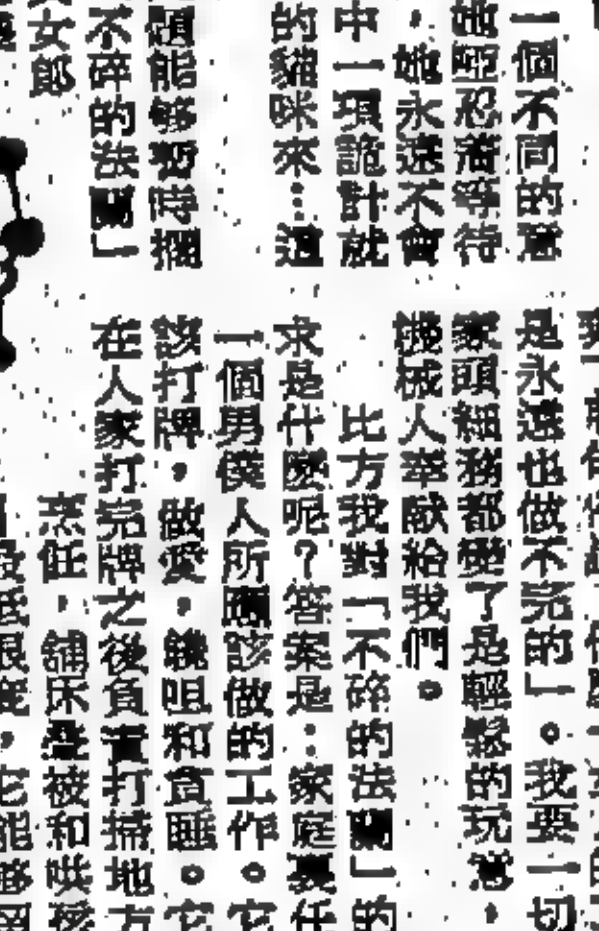 一個不同的意
她啞忍着等待
，她永遠不會
中一項詭計就
的貓咪來…這
能够暫時擱
不碎的法蘭」
女郎
是永遠也做不完的」。我要一切
家頭細務都變了是輕鬆的玩意，
機械人奉献給我們。
比方我對「不碎的法蘭」的
求是什麽呢？答案是：家庭裏任
一個男僕人所應該做的工作。它
該打牌，做愛，咀和貪睡。它
在人家打完牌之後負責打掃地方
烹飪，舖床叠被和哄孩